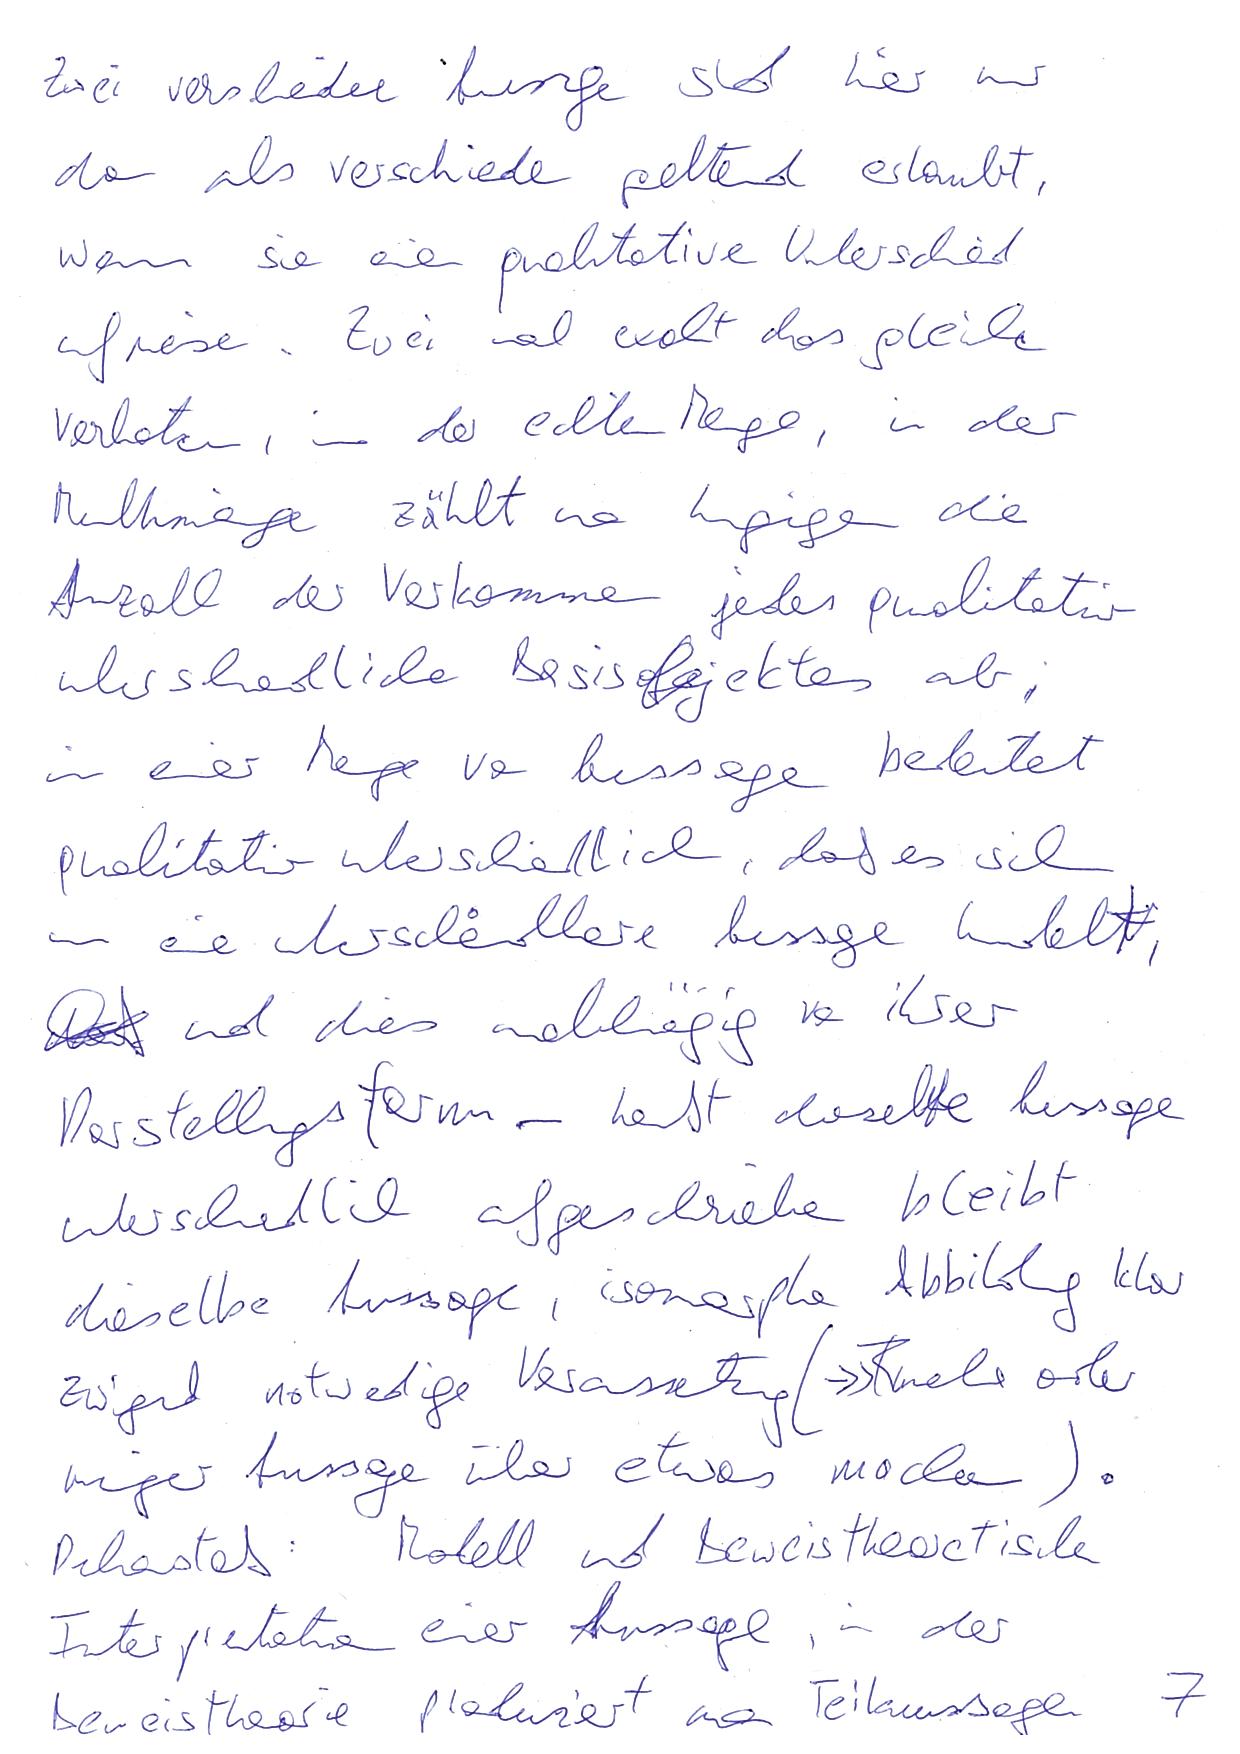 Zwei verschiedene Aussagen sind hier nur
dann als verschieden geltend erlaubt,
wenn sie einen qualitativen Unterschied
aufweisen. Zwei mal exakt das gleiche
verboten, in der echten Menge, in der
Multimenge zählt man hingegen die
Anzahl der Vorkommen jedes qualitativ
unterschiedlichen Basisobjektes ab;
in einer Menge von Aussagen bedeutet
qualitativ unterschiedlich, daß es sich
um eine unterschiedliche Aussage handelt,
und dies unabhängig von ihrer
Darstellungsform – heißt dieselbe Aussage
unterschiedlich aufgeschrieben bleibt
dieselbe Aussage, isomorphe Abbildung klar
zwingend notwendige Voraussetzung (=> oder
weniger Aussage über etwas machen).
Modell und Beweistheoretische
Interpretation einer Aussage, in der
Beweistheorie produziert man Teilaussagen 7